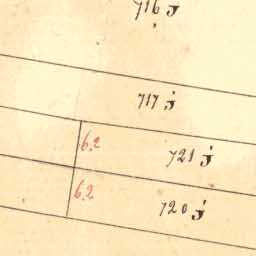 716 j
717 j
6.2
721 j
6.2
720 j